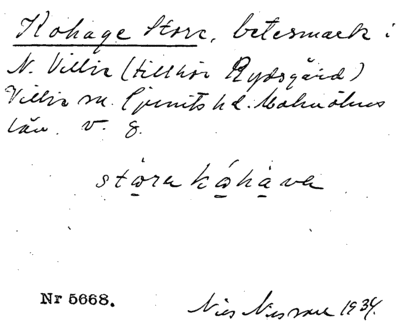 Kohage Store, betesmark i
N. Villie (tillhör Rydsgård)
Villie sn. Ljunits hd. Malmöhus
län. v. g.
stora kåhava
Nr 5668.
Nils Nilsson 1934.